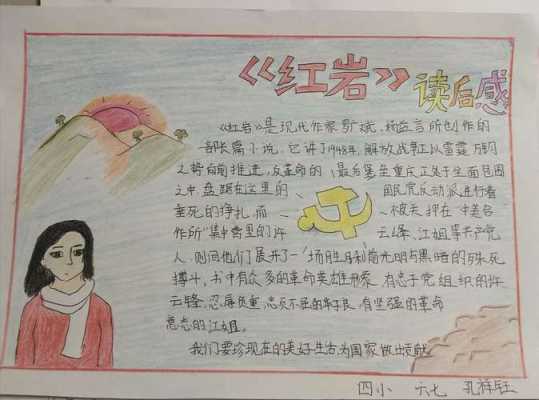 《红岩》读后感
《红岩》是现代作家罗广斌，杨益言所创作的
一部长篇小说。它讲了1948年，解放战争正以雷霆万钧
之势向前推进，反革命的最后堡垒重庆正处于全面包围
之中，盘踞在这里的国民党反动派进行着
垂死的挣扎，而被关押在"中美合
作所"集中营里的许云峰、江姐等共产党
人，则同他们展开了一场胜利前光明与黑暗的殊死
搏斗。书中有众多的革命英雄形象，有忠于党组织的许
云峰，忍辱负重，忠贞不屈的华子良，有坚强的革命
意志的江姐。
我们要珍现在的美好生活，为国家做出贡献
四小 六七 孔祥钰